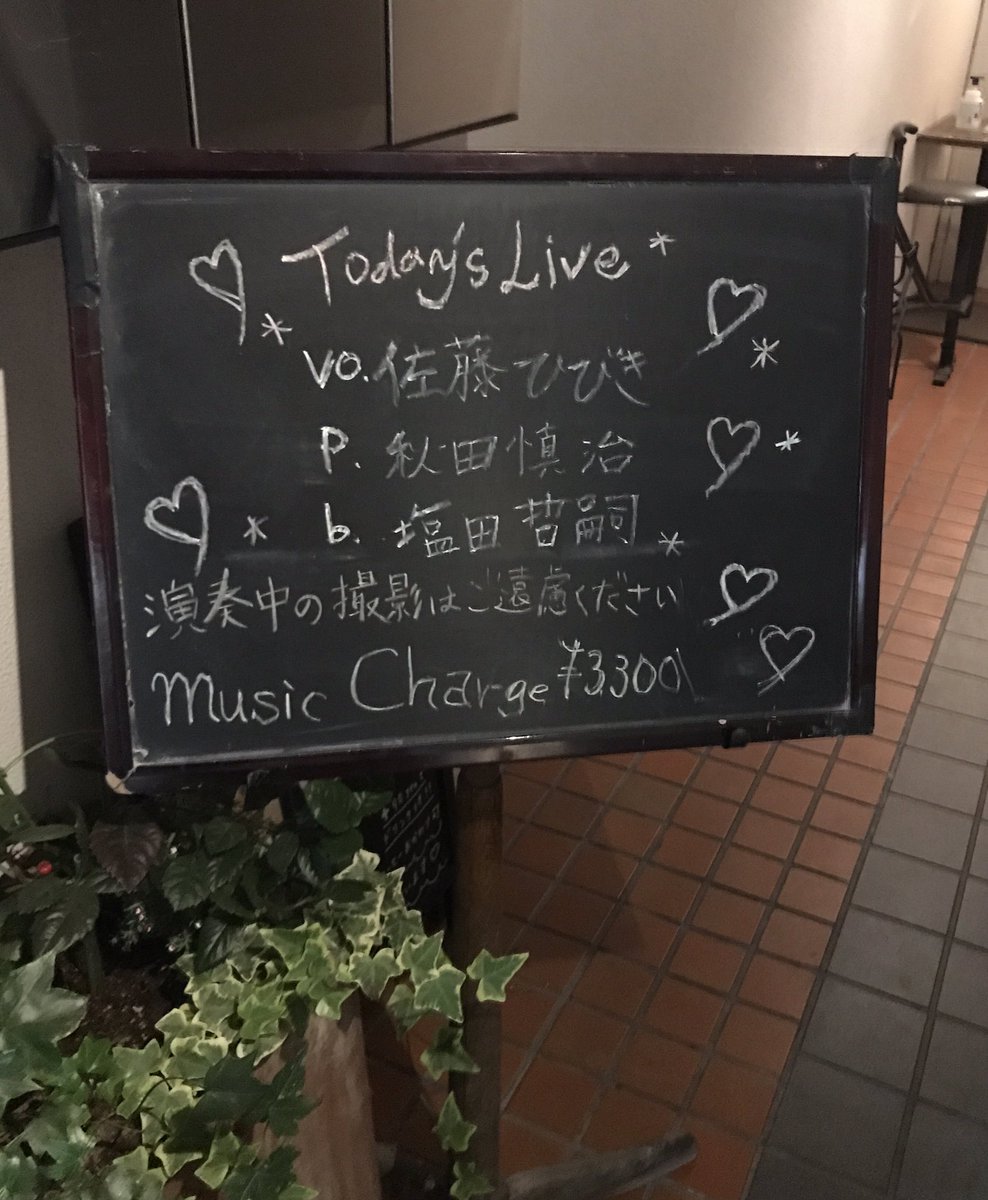 Today's Live
vo. 佐藤ひびき
P. 秋田慎治
b. 塩田哲嗣
演奏中の撮影はご遠慮ください
Music Charge ¥3,300